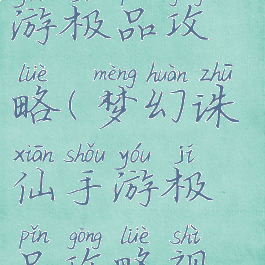 游极品攻
lüè mèng huàn zhū
略(梦幻诛
xiān shǒu yóu jí
仙手游极
pǐn gōng lüè shì
品攻略视